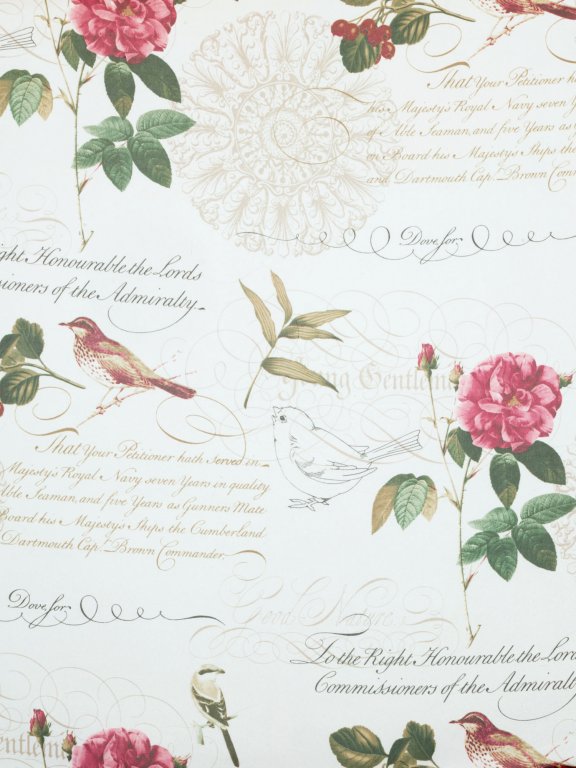 That Your Petitioner h
his Majesty's Royal Navy seven Y
of Able Seaman, and five Years as
on Board his Majesty's Ships the
and Dartmouth Cap.ᵗ Brown Com
Dove for
ght Honourable the Lords
sioners of the Admiralty
Young Gentlem
That Your Petitioner hath Served in
Majesty's Royal Navy seven Years in quality
Able Seaman, and five Years as Gunners Mate
Board his Majesty's Ships the Cumberland
Dartmouth Cap.ᵗ Brown Commander
Dove for
Good Nature
To the Right Honourable the Lord
Commissioners of the Admiralt
entlem